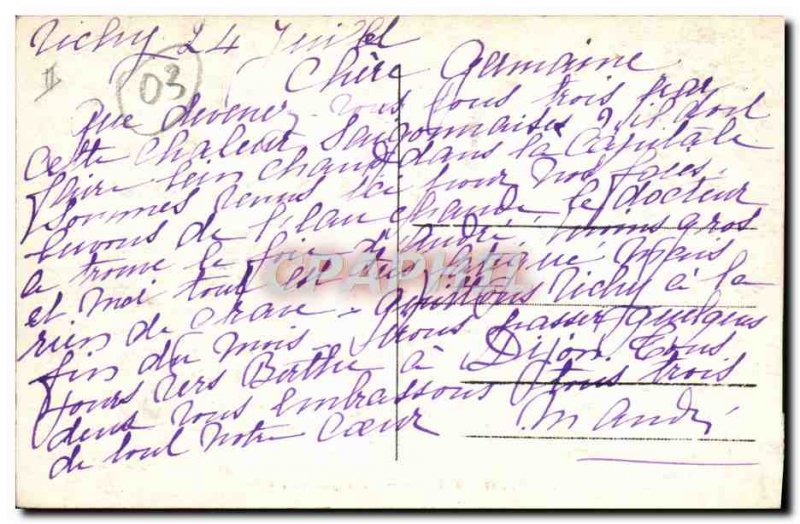 Vichy 24 Juillet
II
03
Chère Germaine
Que devenez vous tous trois par
cette chaleur Saigonnaise ? il doit
faire bien chaud dans la Capitale
Sommes venus ici pour nos foies.
buvons de l'eau chaude, le docteur
a trouvé le foie d'André moins gros
et moi tout est fatigué, mais
rien de grave - quittons Vichy à la
fin du mois - Irons passer quelques
jours vers Berthe à Dijon. Tous
deux vous embrassons tous trois
de tout notre cœur
M André
CPAPHIL